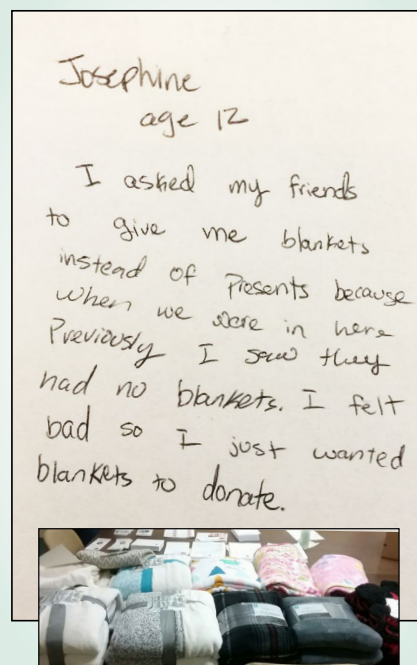 Josephine
age 12
I asked my friends
to give me blankets
instead of Presents because
when we were in here
Previously I saw they
had no blankets. I felt
bad so I just wanted
blankets to donate.